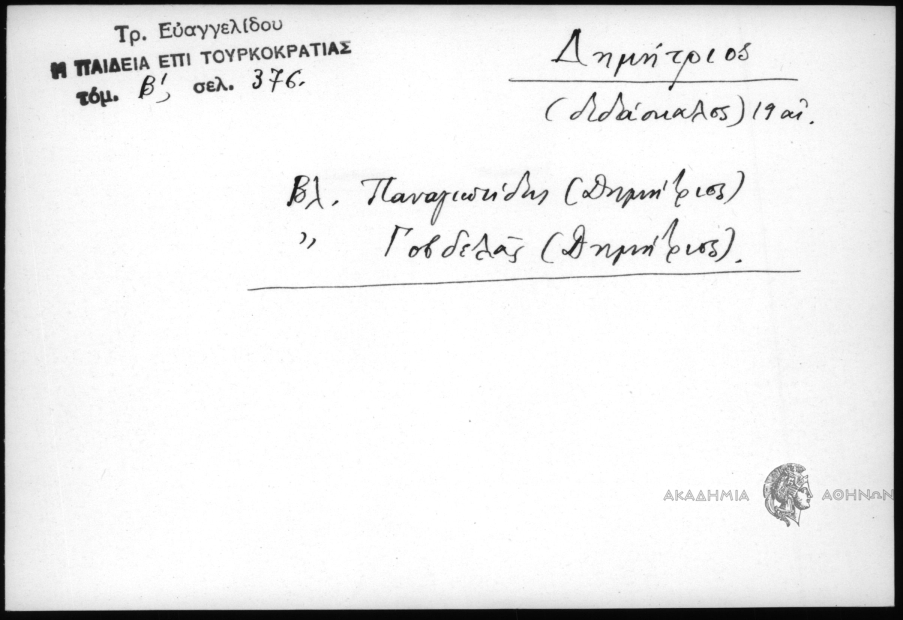 Τρ. Εὐαγγελίδου
Η ΠΑΙΔΕΙΑ ΕΠΙ ΤΟΥΡΚΟΚΡΑΤΙΑΣ
τόμ. Β', σελ. 376.
Δημήτριος
(διδάσκαλος) 19 αἰ.
Βλ. Παναγιωτίδης (Δημήτριος)
" Γοβδελᾶς (Δημήτριος).
ΑΚΑΔΗΜΙΑ ΑΘΗΝΩΝ